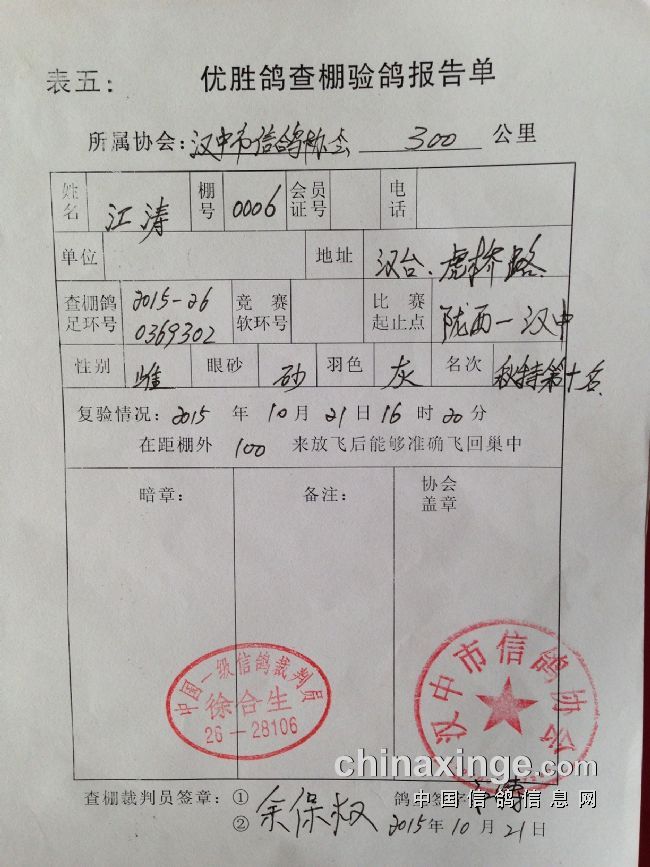 表五：优胜鸽查棚验鸽报告单
所属协会：汉中市信鸽协会 300 公里
姓名 江涛 棚号 0006 会员证号 电话
单位 地址 汉台、虎桥路
查棚鸽足环号 2015-26 0369302 竞赛软环号 比赛起止点 陇西一汉中
性别 雌 眼砂 砂 羽色 灰 名次 秋特第十名
复验情况：2015 年 10月 21日 16 时 20分
在距棚外 100 来放飞后能够准确飞回巢中
暗章： 备注： 协会盖章
中国一级信鸽裁判员
徐合生
26－28106
汉中市信鸽协会
chinaxinge.com
中国信鸽信息网
查棚裁判员签章：① 鸽
② 余保权 2015年 10月 21日